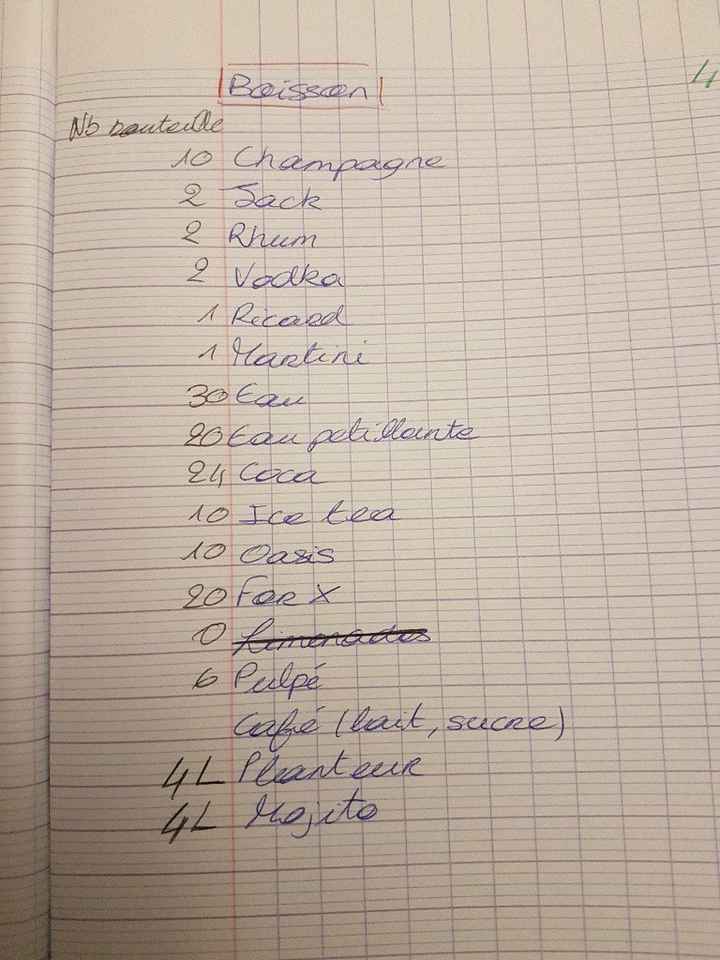 Boisson
4
Nb bouteille
10 Champagne
2 Jack
2 Rhum
2 Vodka
1 Ricard
1 Martini
30 Eau
20 Eau petillante
24 Coca
10 Ice tea
10 Oasis
20 For X
0 Limonades
6 Pulpé
Café (lait, sucre)
4L Planteur
4L Mojito